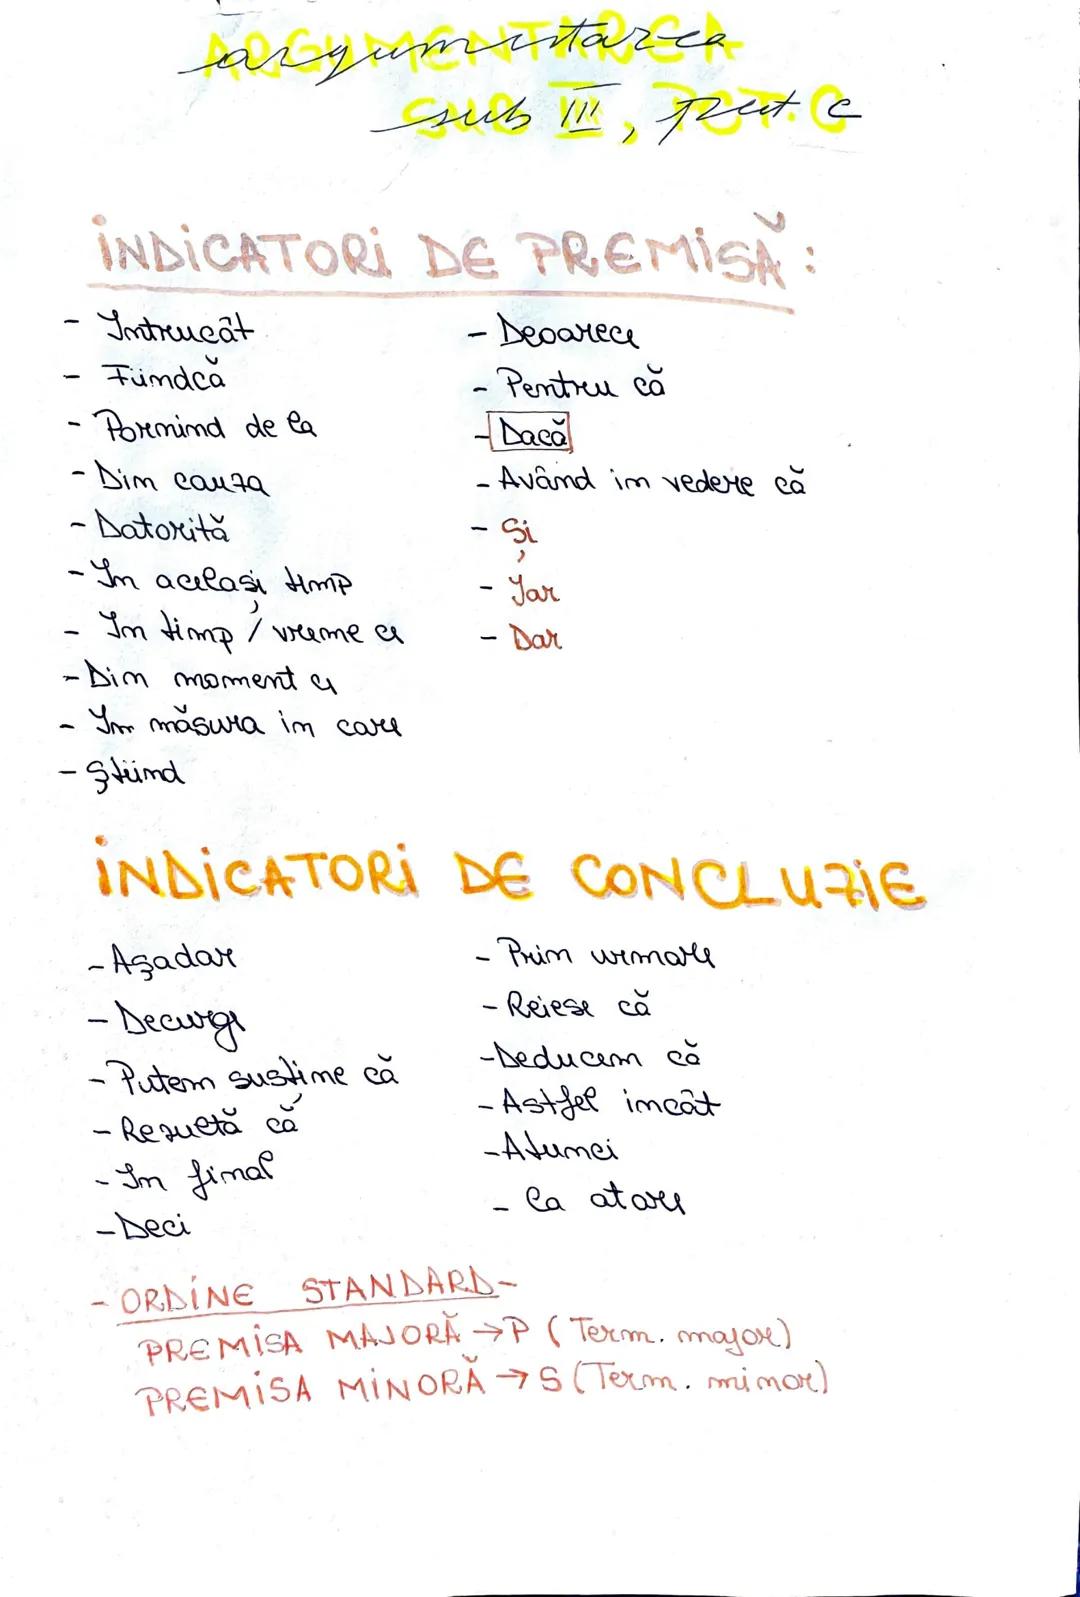 argumentarea
sub III, pct. c
INDICATORI DE PREMISĂ:
- Intrucât
- Fiindcă
- Pornind de la
- Din cauza
- Datorită
- In același timp
- In timp / vreme ce
- Din moment ce
- In măsura in care
- Știind
- Deoarece
- Pentru că
- Dacă
- Având in vedere că
- Și
- Iar
- Dar
INDICATORI DE CONCLUZIE
- Așadar
- Decurge
- Putem susține că
- Rezultă că
- In final
- Deci
- Prin urmare
- Reiese că
- Deducem că
- Astfel incât
- Atunci
- Ca atare
- ORDINE STANDARD-
PREMISA MAJORĂ → P (Term. major)
PREMISA MINORĂ → S (Term. minor)